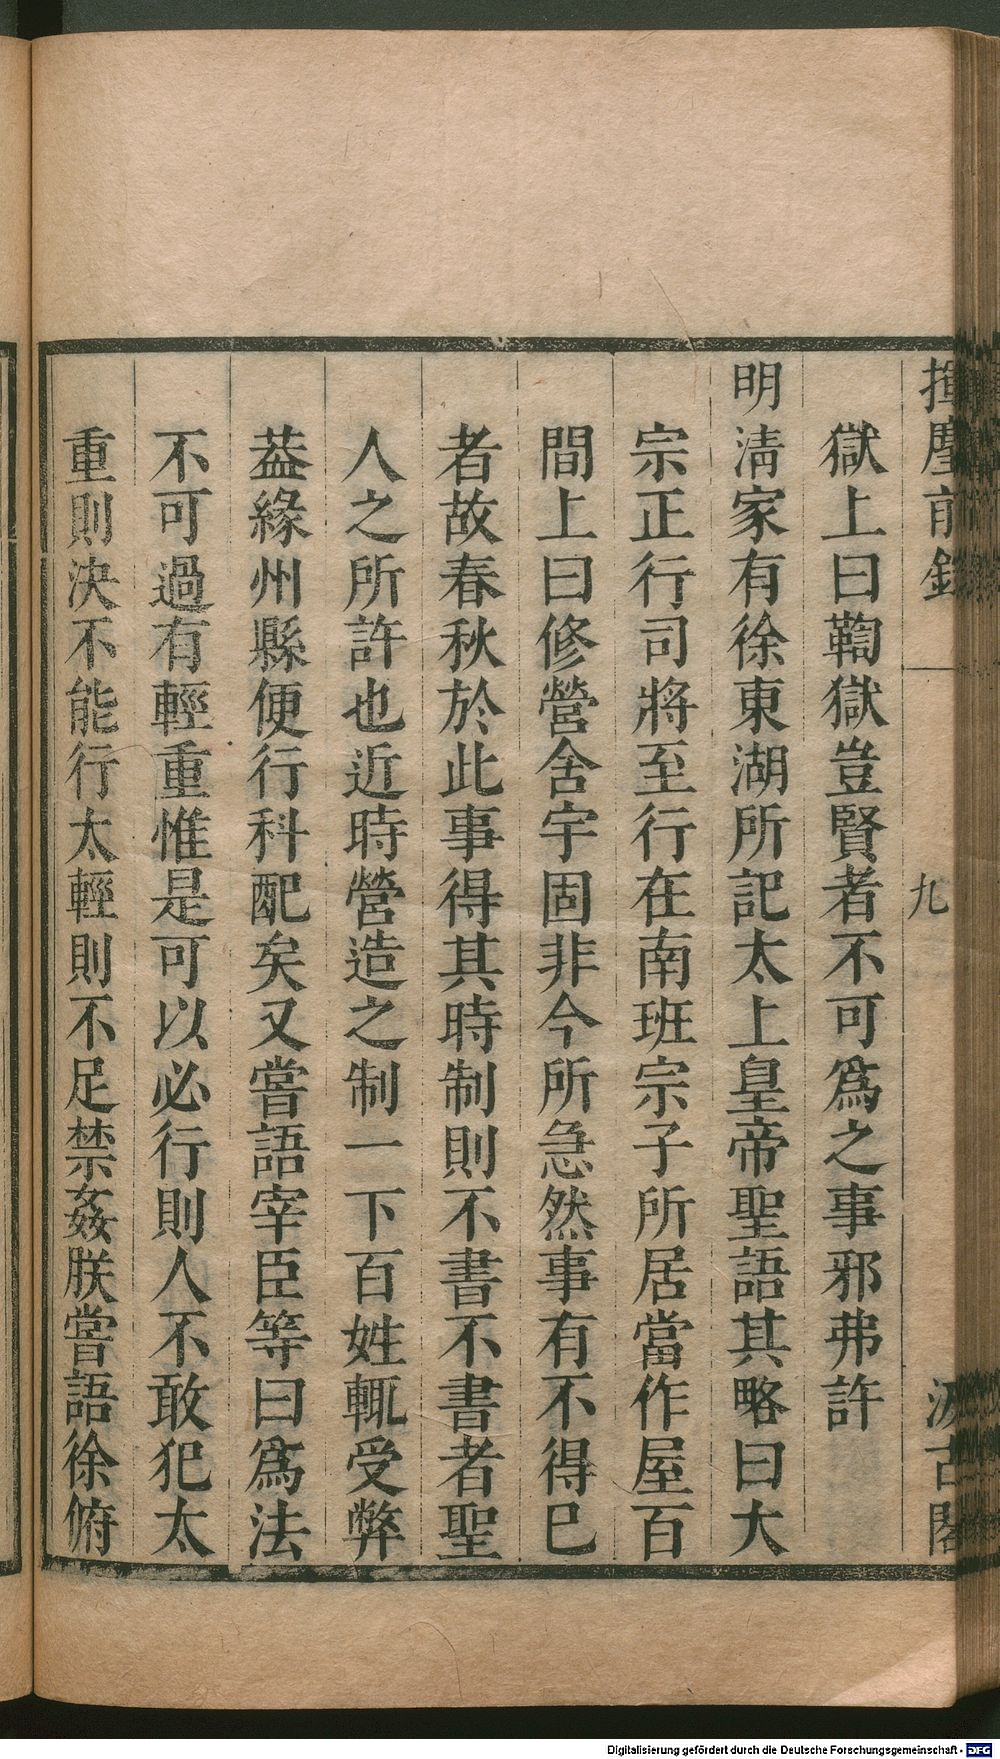 揮麈前錄 九 汲古閣
獄上曰鞫獄豈賢者不可爲之事邪弗許
明清家有徐東湖所記太上皇帝聖語其略曰大
宗正行司將至行在南班宗子所居當作屋百
間上曰修營舍宇固非今所急然事有不得已
者故春秋於此事得其時制則不書不書者聖
人之所許也近時營造之制一下百姓輒受弊
葢緣州縣便行科配矣又嘗語宰臣等曰爲法
不可過有輕重惟是可以必行則人不敢犯太
重則決不能行太輕則不足禁姦朕嘗語徐俯
Digitalisierung gefördert durch die Deutsche Forschungsgemeinschaft - DFG